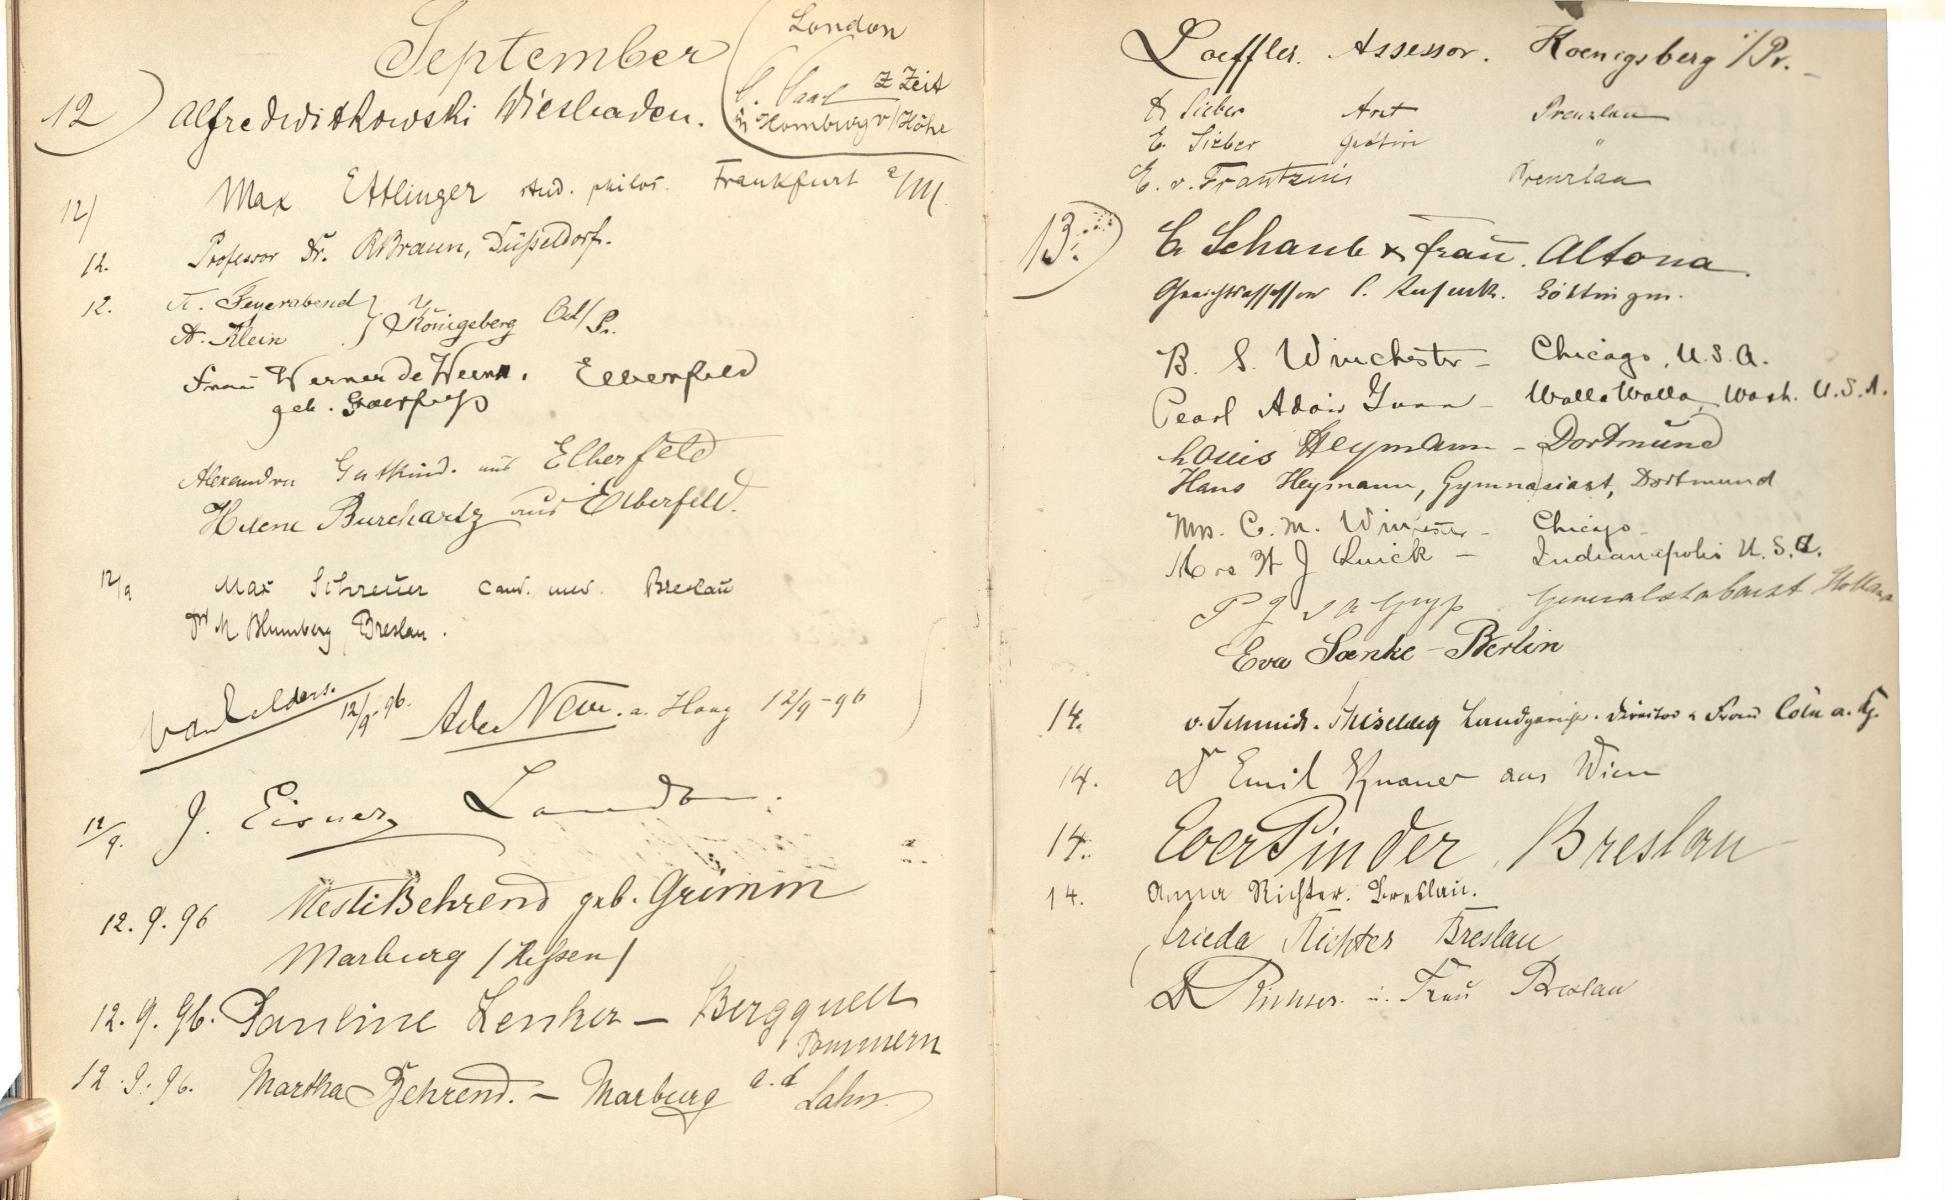 September
London
z Zeit
in Homburg v/Höhe
12) Alfred Witkowski Wiesbaden.
12/ Max Ettlinger stud. philos. Frankfurt a/M.
12. Professor Dr. R Braun, Düsseldorf.
12. A. Feyerabend
A. Klein } Königsberg Ost/Pr.
Frau Werner de Weerth. Elberfeld
geb.
Alexandra Gutkind. aus Elberfeld
Helene Burchartz aus Elberfeld.
12/9 Max Schreuer cand. med. Breslau
Dr M Blumberg Breslau.
van Gelders. 12/9-96. a. Haag 12/9-96
12/9. J. Eisner London.
12.9.96 Behrend geb. Grimm
Marburg /Hessen/
12.9.96. Pauline Lenker – Bergquell
Pommern
12.9.96. Martha Behrend. – Marburg a. d. Lahn.
Loeffler. Assessor. Koenigsberg i/Pr.
Dr Sieber Arzt Prenzlau
E. Sieber Gattin "
E. v. Frantzius Prenzlau
13. C. Schaub & Frau. Altona.
Gerichtsassessor Göttingen.
B. S. Winchester – Chicago, U.S.A.
Pearl Adair Gunn – Walla Walla, Wash. U.S.A.
Louis Heymann – Dortmund
Hans Heymann, Gymnasiast, Dortmund
Mrs. C. M. Winchester – Chicago
Mrs W J Quick – Indianapolis U.S.A.
Generalstabarst Holland
Eva Saenke – Berlin
14. v. Schmidt. Director u Frau Cöln a. Rh.
14. Dr Emil Knauer aus Wien
14. Pinder, Breslau
14. Anna Richter. Breslau.
Frieda Richter Breslau
Dr Richter. u. Frau Breslau